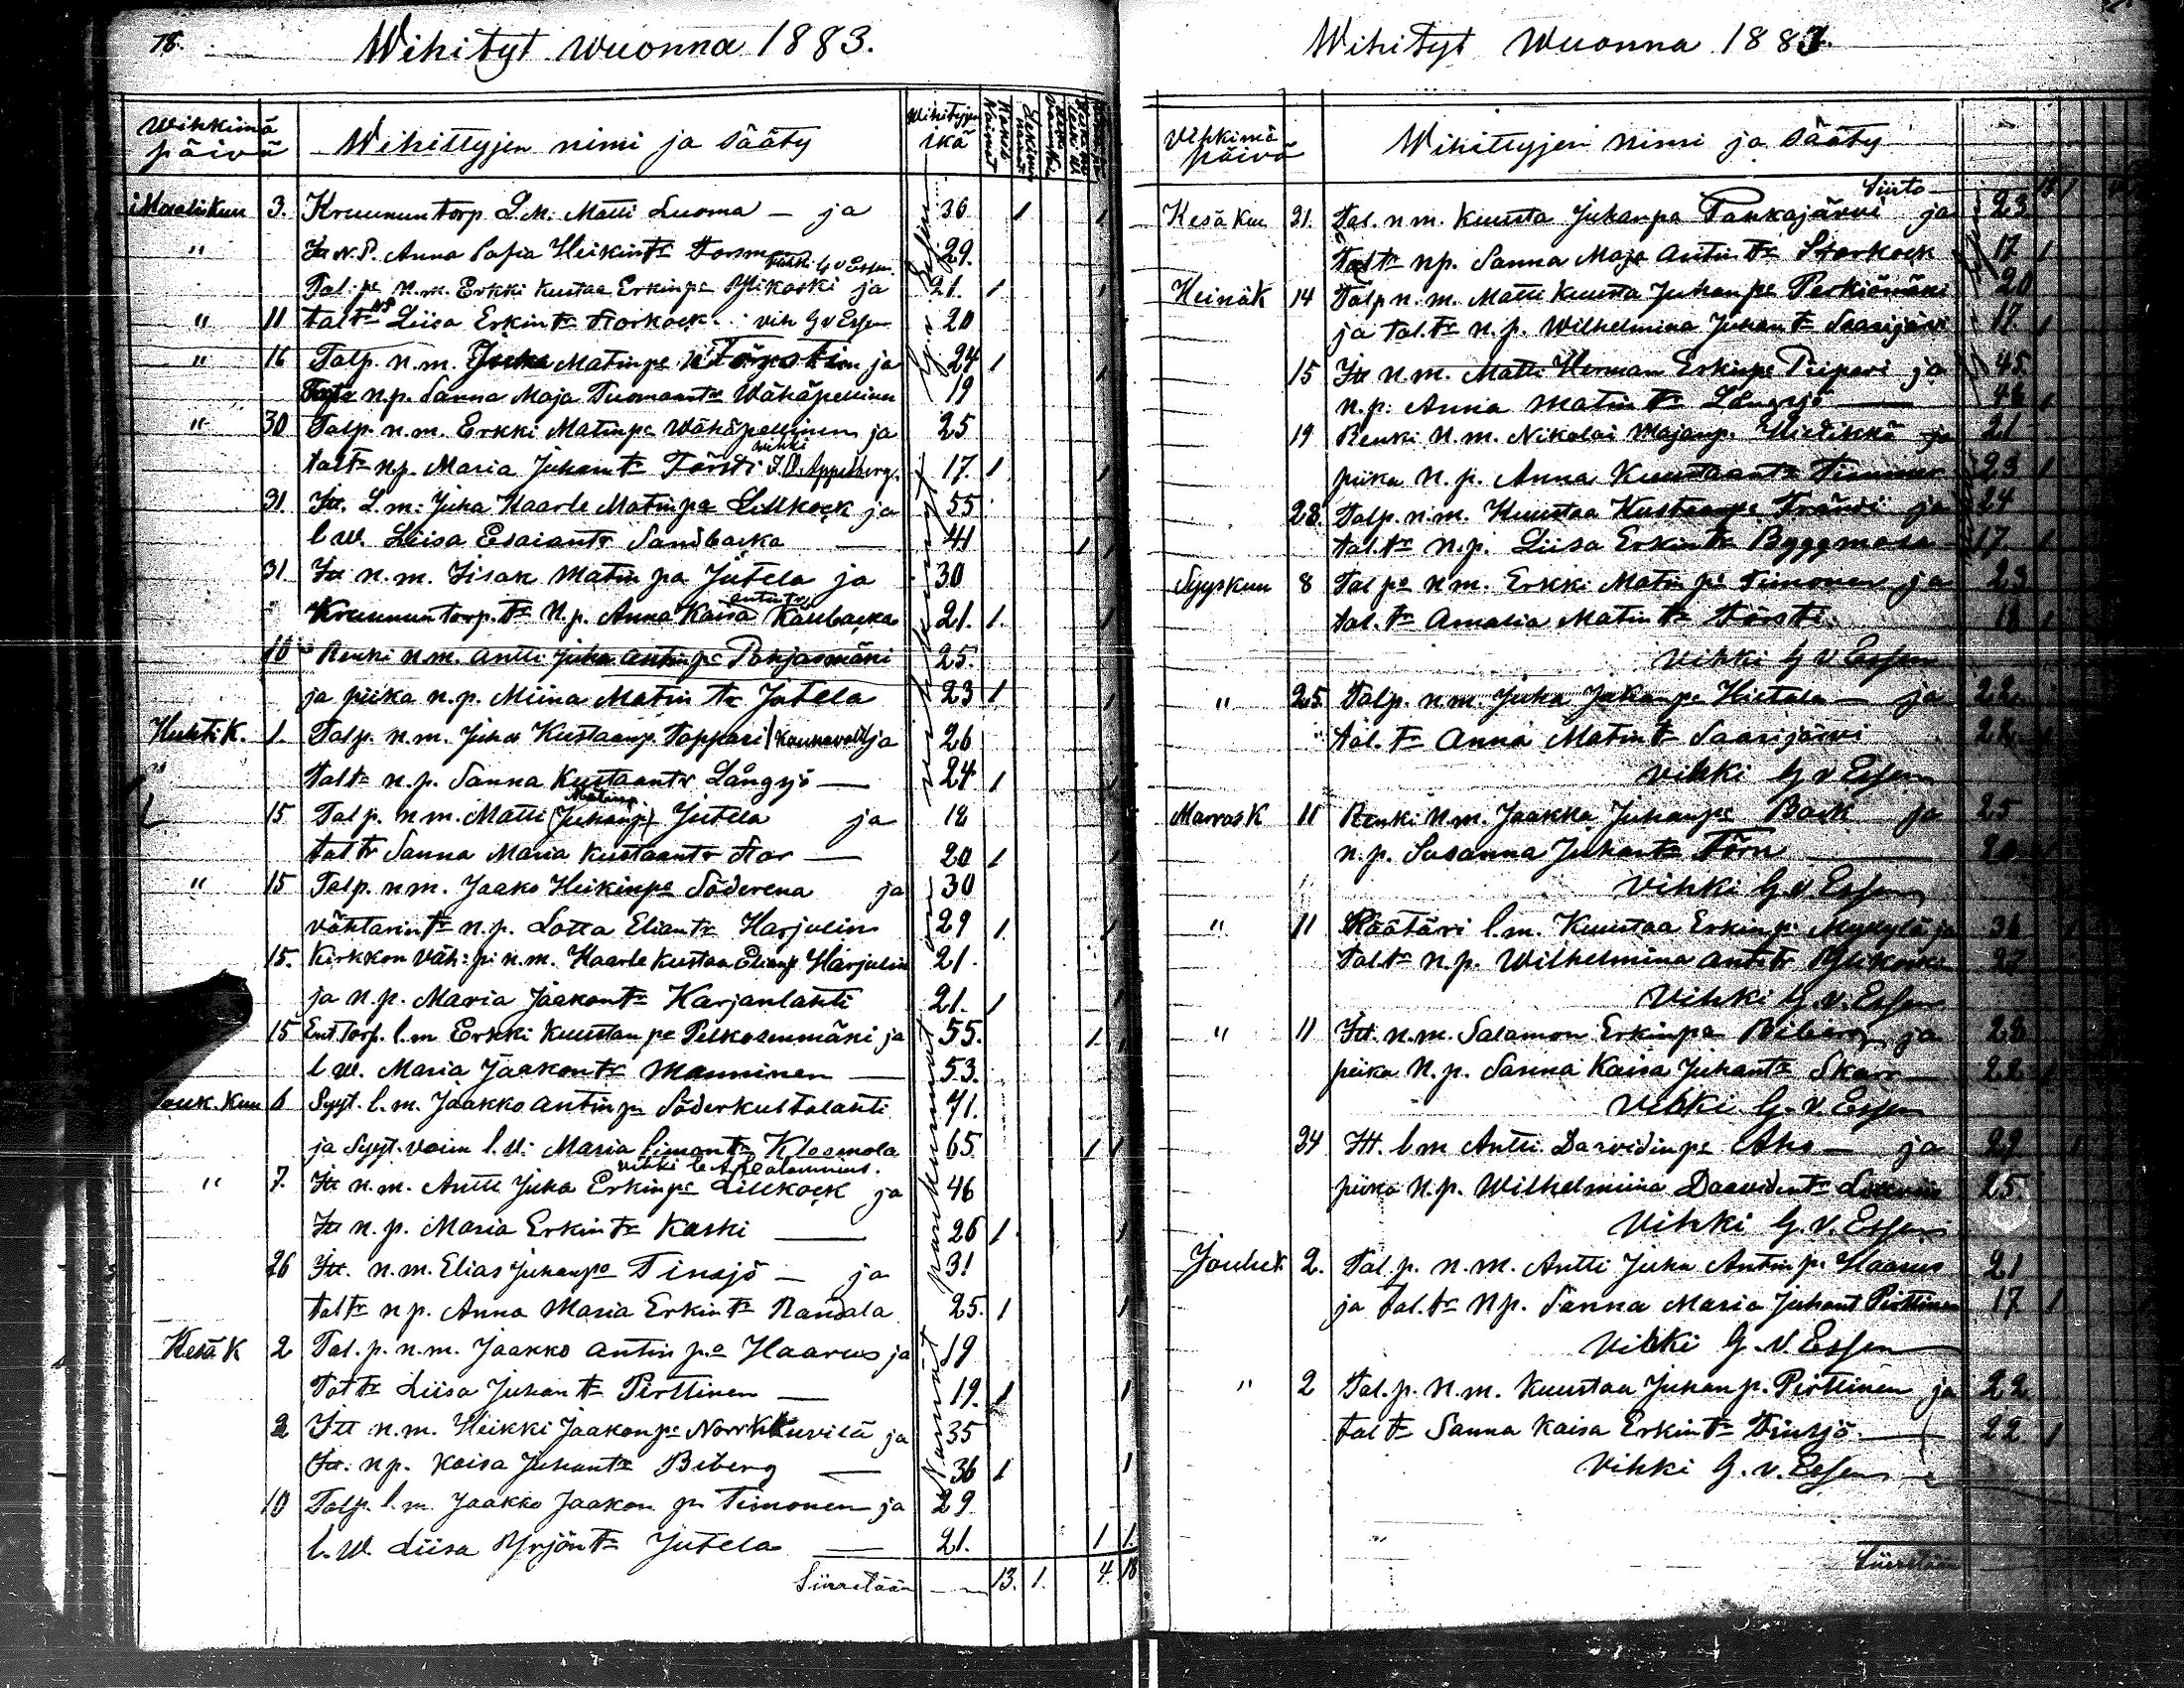 78.
Wihityt wuonna 1883.
Wihkimä päivä
Wihittyjen nimi ja sääty
Wihittyjen ikä
Maaliskuu 3. Kruununtorp. L.M. Matti Luoma — ja 36 1 1
" It. N.P. Anna Sofia Heikintr 29.
Vihki G v Essen.
Tal. pa n.m. Erkki Kustaa Erkinpa Ylikoski ja 21. 1 1
" 11 taltr np Liisa Erkintr Storkock vih G v Essen 20
" 16 Talp. n.m. Juha Matinpa ja 24 1 1
n.p. Sanna Maja Tuomaantr Wähäpellinen 19
" 30 Talp. n.m. Erkki Matinpa Wähäpellinen ja 25
taltr n.p. Maria Juhantr Törsti vihki Appelberg. 17. 1 1
31. It. L.m. Juha Kaarle Matinpa Lillkock ja 55
l.w. Liisa Esaiantr Sandbacka — 41 1 1
31 It n.m. Iisak Matinpa Jutela ja 30
Kruunun torp. tr N.p. Anna Kaisa Antintr 21. 1. 1
10 Renki n.m. Antti Juha Antinpa Pohjasmäki 25.
ja piika n.p. Miina Matintr Jutela 23 1 1
Huhtik. 1. Talp. n.m. Juha Kustaanp. Tappari / ja 26
" taltr n.p. Sanna Kustaantr Långsjö — 24 1 1
15 Talp. n.m. Matti (Juhanp) Matinp. Jutela ja 18
taltr Sanna Maria Kustaantr Stor — 20 1 1
" 15 Talp. n.m. Jaako Heikinpa Söderena ja 30
vähtarintr n.p. Lotta Eliantr Harjulin 29 1. 1
15. Kirkkon väh: p. n.m. Kaarle Kustaa Elianp. Harjulin 21.
ja n.p. Maria Jaakontr Karjanlahti 21. 1 1
15 Ent. torp. l.m Erkki Kuustaapa Pelkosenmäki ja 55. 1 1
l.w. Maria Jaakontr Manninen — 53.
Touk. kuu 6 Syyt. l.m. Jaakko Antinpa Söderkultalahti 71.
ja Syyt. vaim l.v. Maria Simontr Kleemola 65 1 1
" 7. It n.m. Antti Juha Erkinpa Lillkock ja 46
It n.p. Maria Erkintr Koski — 26 1 1
26 Itt. n.m. Elias Juhanpa Tinsjö — ja 31
taltr n.p. Anna Maria Erkintr Randala 25. 1 1
Kesä K 2 Tal. p. n.m. Jaakko Antinpa Haarus ja 19
taltr Liisa Juhantr Pirttinen — 19. 1 1
2 Itt n.m. Heikki Jaakonpa ja 35
It. n.p. Kaisa Juhantr Biberg — 36 1 1
10 Talp. l.m. Jaakko Jaakonp. Timonen ja 29
l.w. Liisa Yrjöntr Jutela — 21. 1 1.
Siirretään — 13. 1. 4. 18
Wihityt Wuonna 1883.
Vihkimä päivä
Wihittyjen nimi ja sääty
Siirto
Kesäkuu 31. Tal. n.m. Kuusta Juhanpa Pankajärvi ja 23
taltr n.p. Sanna Maja Antintr Storkock 17 1
Heinäk 14 Talp n.m. Matti Kuusta Juhanpa Perkiömäki 20
ja tal.tr n.p. Wilhelmina Juhantr Saarijärvi 17. 1
15 It n.m. Matti Herman Erkinpa Piipari ja 45.
n.p. Anna Matintr Långsjö — 46 1
19 Renki n.m. Nikolai Majanp. Hietikko ja 21
piika n.p. Anna Kuustaantr 23 1
28. Talp. n.m. Kuustaa Kustaanpa ja 24
tal.tr n.p. Liisa Erkintr Byggmäst 17. 1
Syyskuu 8 Tal pa n.m. Erkki Matinpa Timonen ja 23
tal.tr Amalia Matintr Törsti. 18 1
Vihki G v Essen
" 25. Talp. n.m. Juha Juhanpa Hietala — ja 22.
" tal.tr Anna Matintr Saarijärvi 22
Vihki G v Essen
Marrask 11 Renki n.m. Jaakko Juhanpa Back ja 25
n.p. Susanna Juhantr Törn — 20
Vihki G. v. Essen
" 11 Räätäri l.m. Kuustaa Erkinp. Mykylä ja 36
Taltr n.p. Wilhelmina Antintr Ylikoski 27
Vihki G. v. Essen
" 11 Itt. n.m. Salamon Erkinpa Biberg ja 28
piika n.p. Sanna Kaisa Juhantr Skarr — 22
Vihki G. v. Essen
24 Itt. l.m Antti Daavidinpa Aho — ja 27
piika n.p. Wilhelmiina Daavidintr 25.
Vihki G. v. Essen
Jouluk 2. Tal. p. n.m. Antti Juha Antinp. Haarus 21
ja tal.tr n.p. Sanna Maria Juhant Pirttinen 17 1
Vihki G. v. Essen
" 2 Tal. p. n.m. Kuustaa Juhanp. Pirttinen ja 22
taltr Sanna Kaisa Erkintr Tinsjö — 22 1
Vihki G. v. Essen
Siirretään